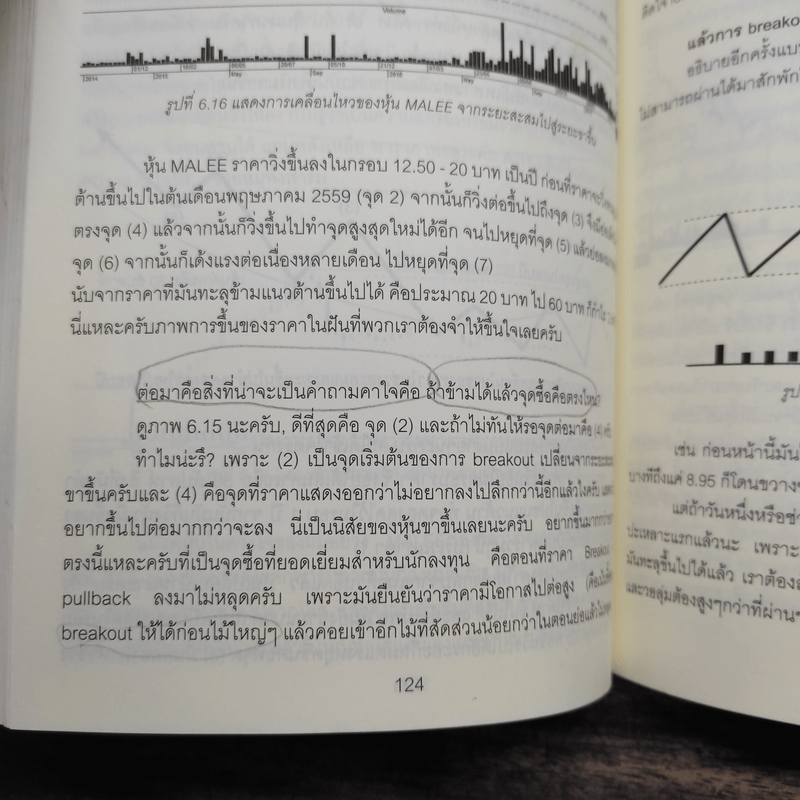 Volume
รูปที่ 6.16 แสดงการเคลื่อนไหวของหุ้น MALEE จากระยะสะสมไปสู่ระยะขาขึ้น
หุ้น MALEE ราคาวิ่งขึ้นลงในกรอบ 12.50 - 20 บาท เป็นปี ก่อนที่ราคาจะวิ่ง
ต้านขึ้นไปในต้นเดือนพฤษภาคม 2559 (จุด 2) จากนั้นก็วิ่งต่อขึ้นไปถึงจุด (3)
ตรงจุด (4) แล้วจากนั้นก็วิ่งขึ้นไปทำจุดสูงสุดใหม่ได้อีก จนไปหยุดที่จุด (5)
จุด (6) จากนั้นก็เด้งแรงต่อเนื่องหลายเดือน ไปหยุดที่จุด (7)
นับจากราคาที่มันทะลุข้ามแนวต้านขึ้นไปได้ คือประมาณ 20 บาท ไป 60 บาท
นี่แหละครับภาพการขึ้นของราคาในฝันที่พวกเราต้องจำให้ขึ้นใจเลยครับ
ต่อมาคือสิ่งที่น่าจะเป็นคำถามคาใจคือ ถ้าข้ามได้แล้วจุดซื้อคือตรงไหน?
ดูภาพ 6.15 นะครับ, ดีที่สุดคือ จุด (2) และถ้าไม่ทันให้รอจุดต่อมาคือ (4)
ทำไมน่ะรึ? เพราะ (2) เป็นจุดเริ่มต้นของการ breakout เปลี่ยนจากระยะ
ขาขึ้นครับและ (4) คือจุดที่ราคาแสดงออกว่าไม่อยากลงไปลึกกว่านี้อีกแล้วไงครับ
อยากขึ้นไปต่อมากกว่าจะลง นี่เป็นนิสัยของหุ้นขาขึ้นเลยนะครับ อยากขึ้นมากกว่า
ตรงนี้แหละครับที่เป็นจุดซื้อที่ยอดเยี่ยมสำหรับนักลงทุน คือตอนที่ราคา Breakout
pullback ลงมาไม่หลุดครับ เพราะมันยืนยันว่าราคามีโอกาสไปต่อสูง
breakout ให้ได้ก่อนไม้ใหญ่ๆ แล้วค่อยเข้าอีกไม้ที่สัดส่วนน้อยกว่าในตอนย่อแล้ว
124
แล้วการ
อธิบายอีกครั้ง
ไม่สามารถผ่านได้มาสักพัก
เช่น ก่อนหน้านี้มัน
บางทีถึงแค่ 8.95 ก็โดนขวาง
แต่ถ้าวันหนึ่งหรือ
ปะเหลาะแรกแล้วนะ เพราะ
มันทะลุขึ้นไปได้แล้ว เราต้อง
และวอลุ่มต้องสูงๆกว่าที่ผ่าน